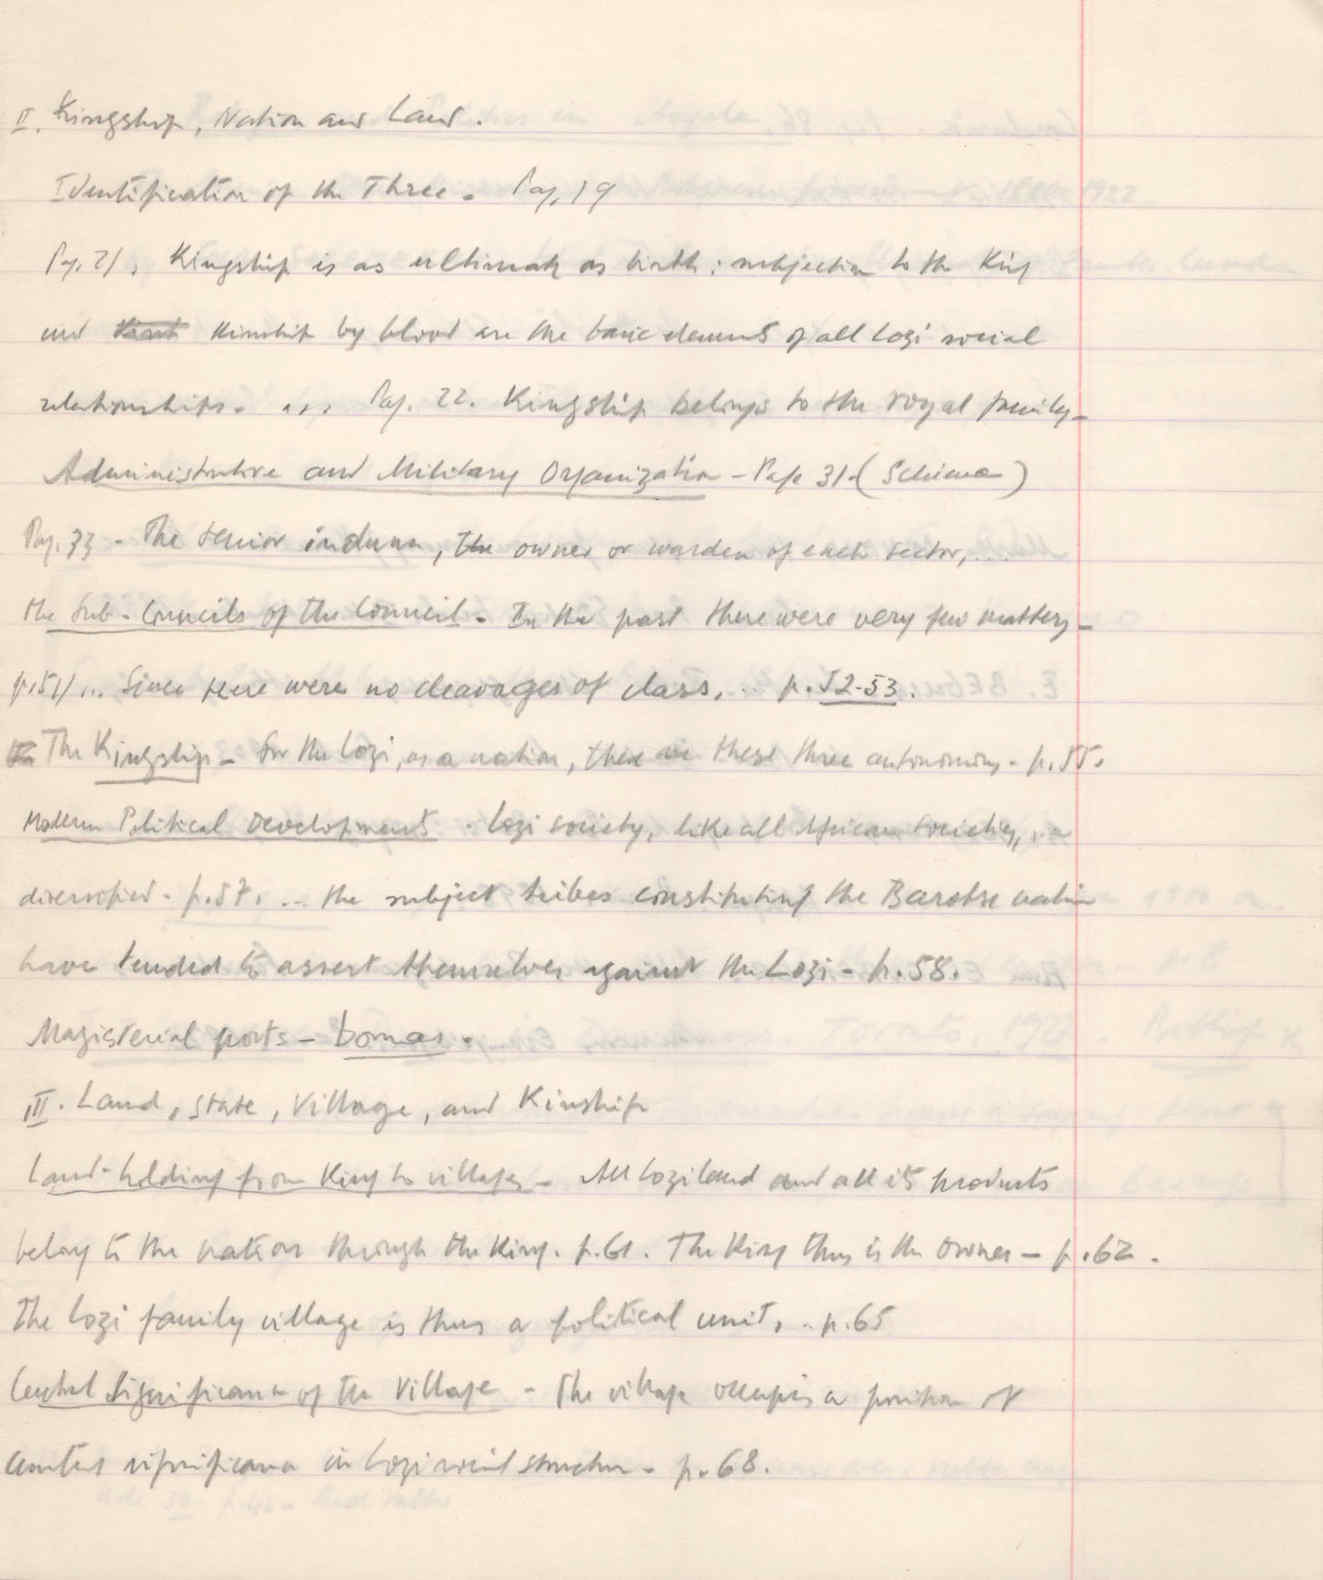 II. Kingship, Nation and Land.
Identification of the Three. Pag, 19
Pag. 21, Kingship is as ultimate as birth: subjection to the King
and kinship by blood are the basic elements of all Lozi social
relationships. ... Pag. 22. Kingship belongs to the royal family-
Administrative and Military Organization - Page 31. (Scheme)
Pag. 33 - The senior induna, the owner or warden of each sector,...
the Sub-Councils of the Council - In the past there were very few matters-
p.51/... Since there were no cleavages of class, .. p. 52-53.
The Kingship - For the Lozi, as a nation, there are these three - p. 55.
Modern Political Developments. Lozi society, like all African societies, ..
diversified - p.57. ... the subject tribes constituting the Barotse nation
have tended to assert themselves against the Lozi - p. 58.
Magisterial posts - bomas.
III. Land, State, Village, and Kinship
Land-holding from King to villager - All Loziland and all its products
belong to the nation through the King. p. 61. The King thus is the owner - p. 62.
The Lozi family village is thus a political unit, .. p. 65
Central Significance of the Village - The village occupies a position of
central significance in Lozi social structure - p. 68.